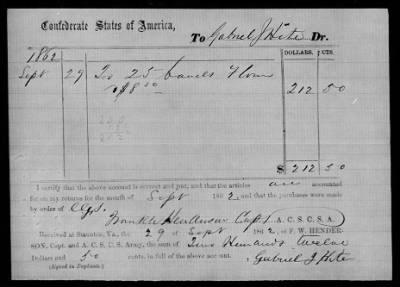 Confederate States of America,
To Gabriel J Hite Dr.
DOLLARS. CTS.
1862
Sept 29 To 25 barrels Flour
@ $8 50 212 50
$ 212 50
I certify that the above account is correct and just, and that the articles are accounted
for on my returns for the month of Sept 1862 and that the purchases were made
by order of CGS.
Frankle Henderson Capt & A. C. S. C. S. A.
Received at Staunton, Va., the 29 of Sept 1862, of F. W. HENDER-
SON, Capt. and A. C. S. C. S. Army, the sum of Two Hundred twelve
Dollars and 50 cents, in full of the above account.
(Signed in Duplicate.) Gabriel J Hite